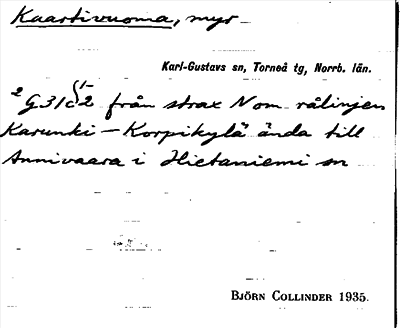 Kaartivuoma, myr
Karl-Gustavs sn, Torneå tg, Norrb. län.
2 G31c 1-2 från strax N om rålinjen
Karunki – Korpikylä ända till
Annivaara i Hietaniemi sn
BJÖRN COLLINDER 1935.